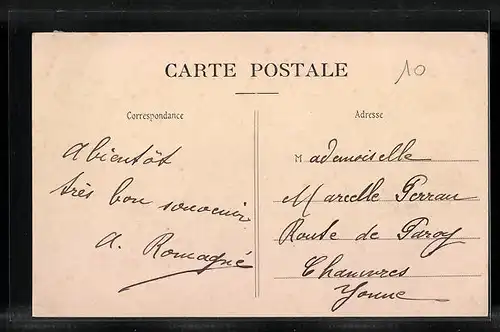 CARTE POSTALE
10
Correspondance
Adresse
A bientôt
très bon souvenir
A. Romagné
Mademoiselle
Marcelle Perrau
Route de Paroy
Chamvres
Yonne